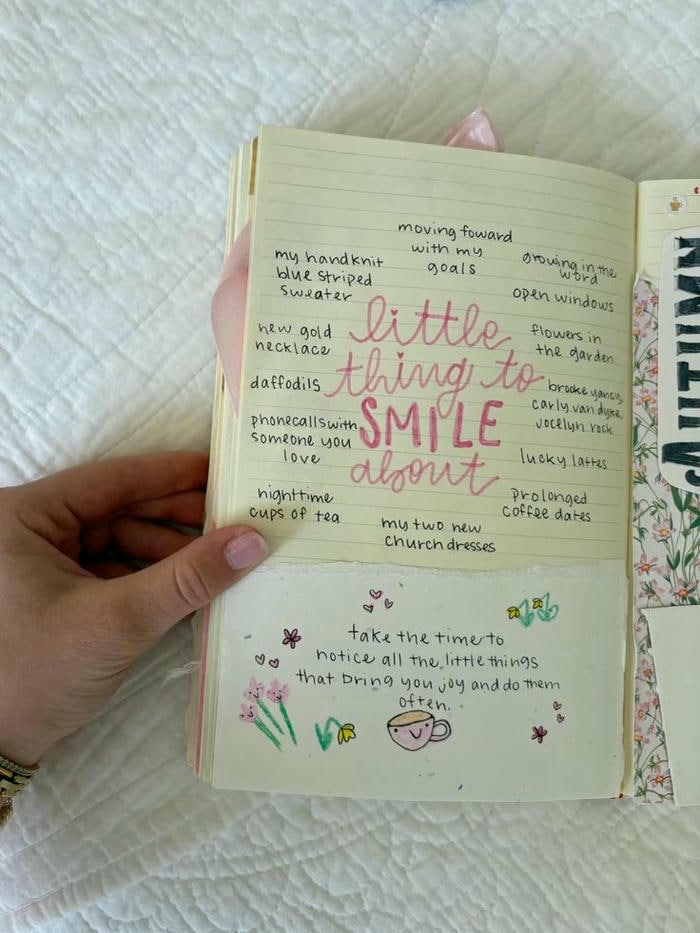 moving foward
with my
goals
my handknit
blue striped
sweater
growing in the
word
open windows
new gold
necklace
flowers in
the garden
daffodils
brooke yancy,
carly van dyke,
jocelyn rock
phonecalls with
someone you
love
lucky lattes
nighttime
cups of tea
prolonged
coffee dates
my two new
church dresses
little
thing to
SMILE
about
take the time to
notice all the little things
that bring you joy and do them
often.
AUTUMN